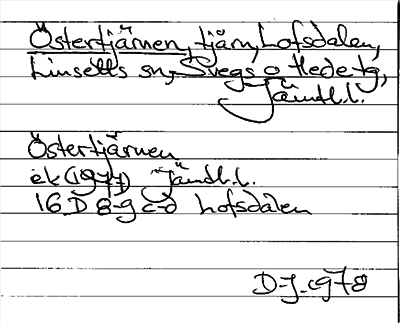 Östertjärnen, tjärn, Lofsdalen,
Linsells sn, Svegs o Hede tg,
Jämtl.l.
Östertjärnen
ek (1977) Jämtl.l.
16D 8-9 c-d Lofsdalen
D-J 1978